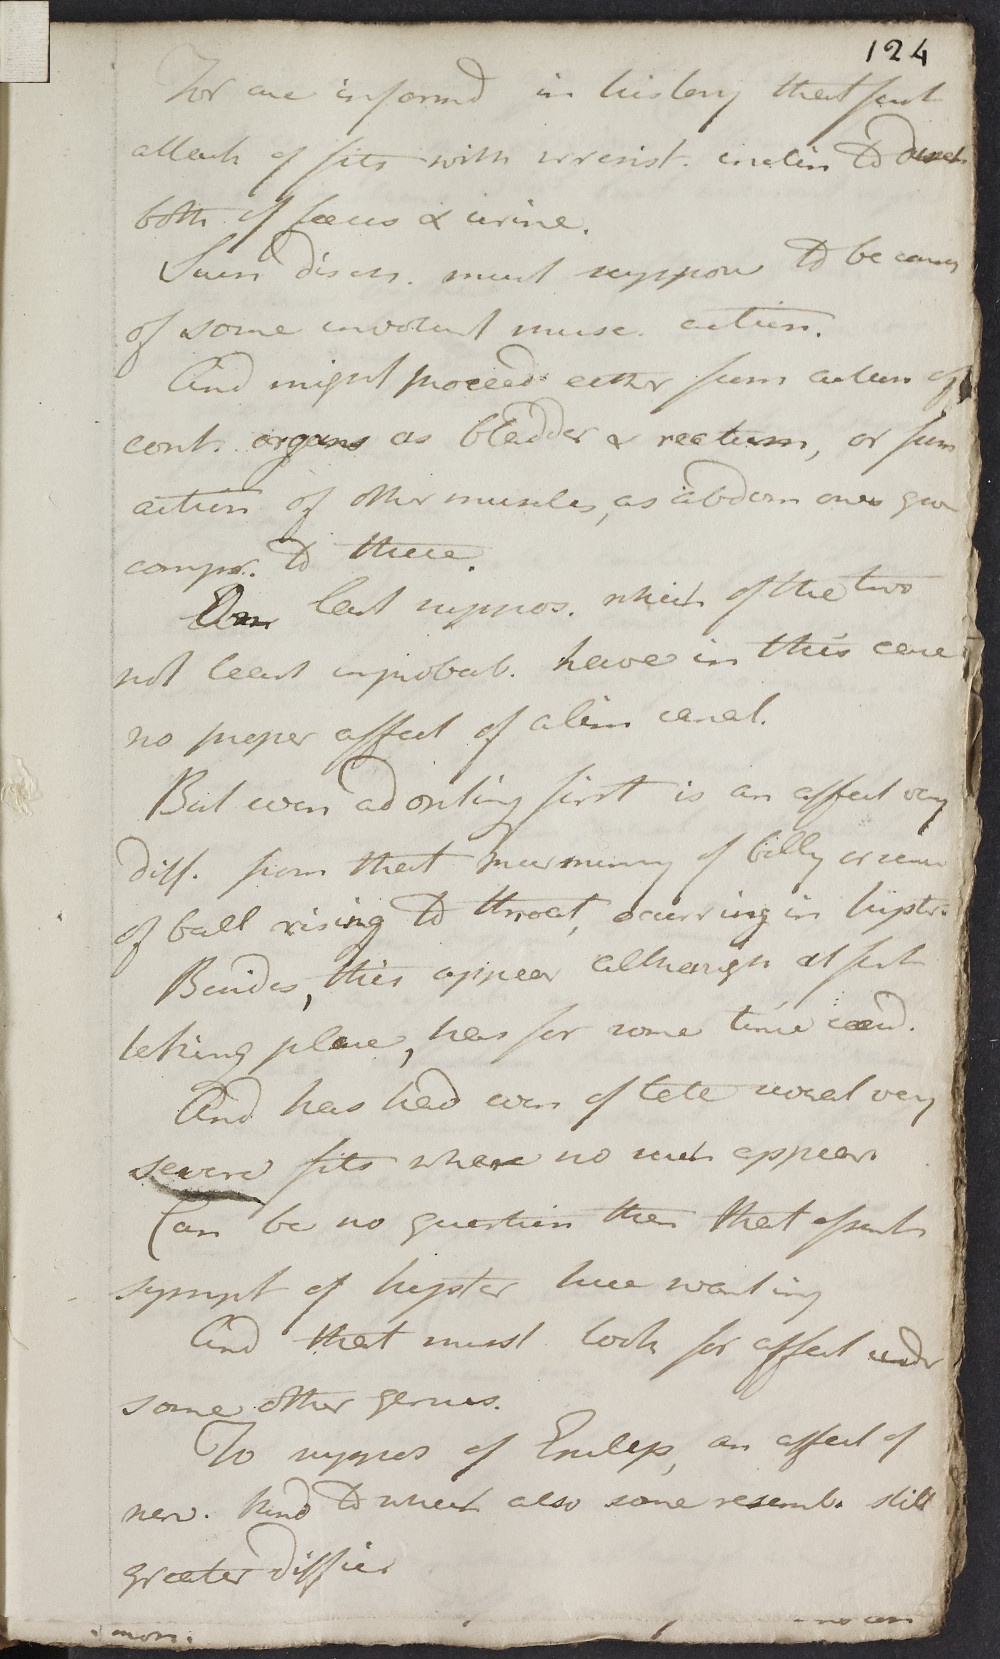 124
For are informd in history that first
attack of fits with irresist. inclin to disch
both of fæces & urine.
Such disch. must suppose to be conseq
of some involunt musc. action.
And might proceed either from action of
cont. organs as bladder & rectum, or from
action of other muscles, as abdom ones give
compr. to these.
On last suppos. which of the two
not least improbab. have in this case
no proper affect of alim canal.
But even adopting first is an affect very
diff. from that murmuring of belly or sense
of ball rising to throat, ocurring in hyster.
Besides, this appear although at first
taking place, has for some time ceasd.
And has had even of late several very
severe fits where no such appear.
Can be no question then that essent
sympt of hyster here wanting
And that must look for affect under
some other genus.
To suppos of Epileps, an affect of
nerv. kind to which also some resemb. still
greater diffic
no con
mon.